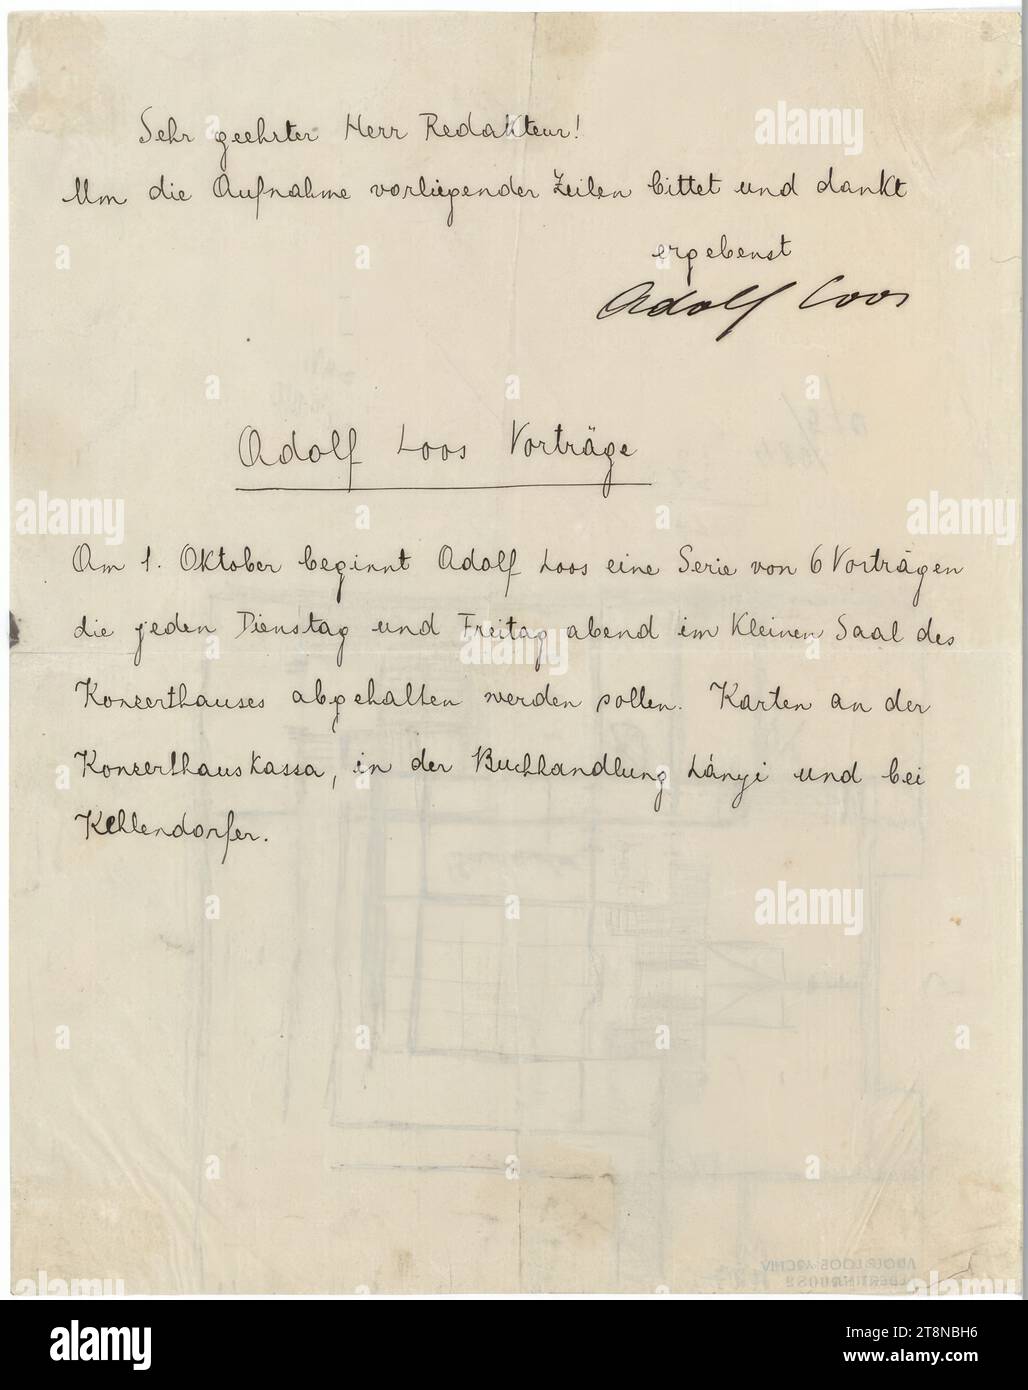 Sehr geehrter Herr Redakteur!
Um die Aufnahme vorliegender Zeilen bittet und dankt
ergebenst
Adolf Loos
Adolf Loos Vorträge
Am 1. Oktober beginnt Adolf Loos eine Serie von 6 Vorträgen
die jeden Dienstag und Freitag abend im Kleinen Saal des
Konzerthauses abgehalten werden sollen. Karten an der
Konzerthauskassa, in der Buchhandlung Lányi und bei
Kehlendorfer.
ADOLF LOOS-ARCHIV
alamy
Image ID: 2T8NBH6
www.alamy.com